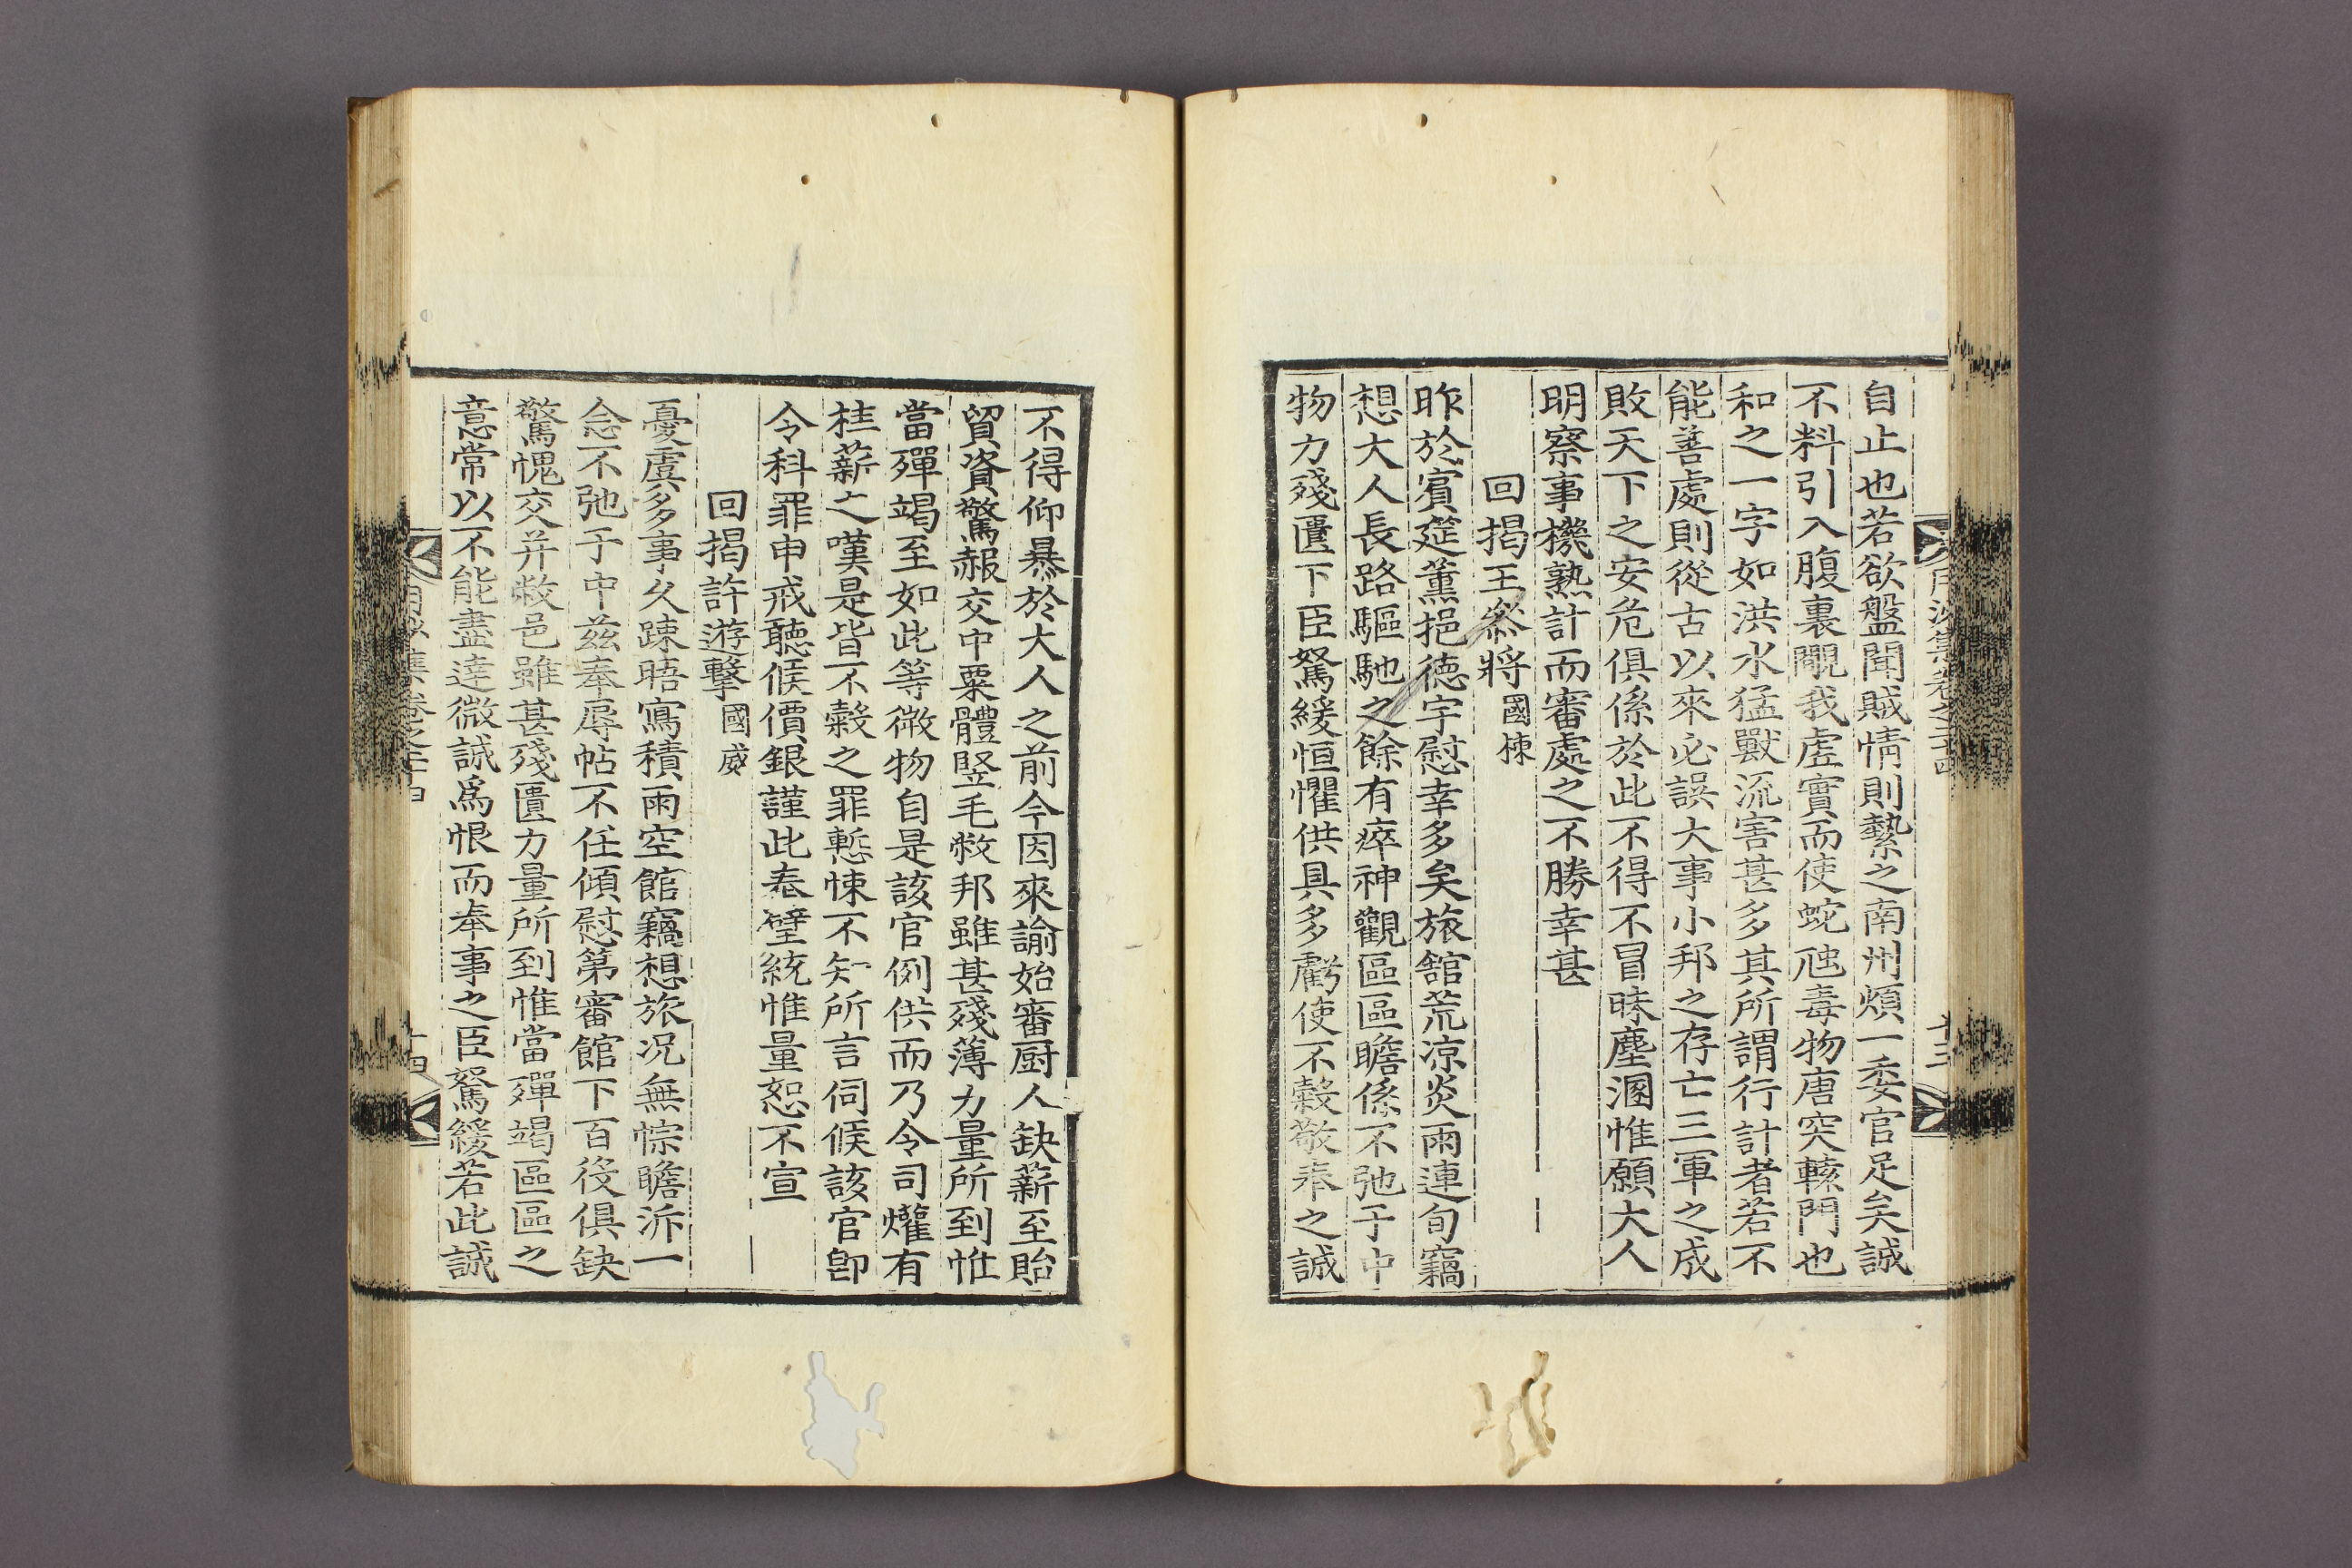 自止也若欲盤聞賊情則縶之南州煩一委官足矣誠
不料引入腹裏覵我虛實而使蛇虺毒物唐突轅門也
和之一字如洪水猛獸流害甚多其所謂行計者若不
能善處則從古以來必誤大事小邦之存亡三軍之成
敗天下之安危俱係於此不得不冒昧塵溷惟願大人
明察事機熟計而審處之不勝幸甚
回揭王叅將國棟
昨於賓筵薰挹德宇慰幸多矣旅舘荒凉炎雨連旬竊
想大人長路驅馳之餘有瘁神觀區區瞻係不弛于中
物力殘匱下臣駑緩恒懼供具多虧使不穀敬奉之誠
不得仰暴於大人之前今因來諭始審厨人缺薪至貽
貿資驚赧交中粟體竪毛敝邦雖甚殘薄力量所到惟
當殫竭至如此等微物自是該官例供而乃令司爟有
桂薪之嘆是皆不穀之罪慙悚不知所言伺候該官卽
令科罪申戒聽候價銀謹此奉璧統惟量恕不宣
回揭許遊擊國威
憂虞多事久踈晤寫積雨空館竊想旅况無悰瞻泝一
念不弛于中玆奉辱帖不任傾慰第審館下百役俱缺
驚愧交并敝邑雖甚殘匱力量所到惟當殫竭區區之
意常以不能盡達微誠爲恨而奉事之臣駑緩若此誠